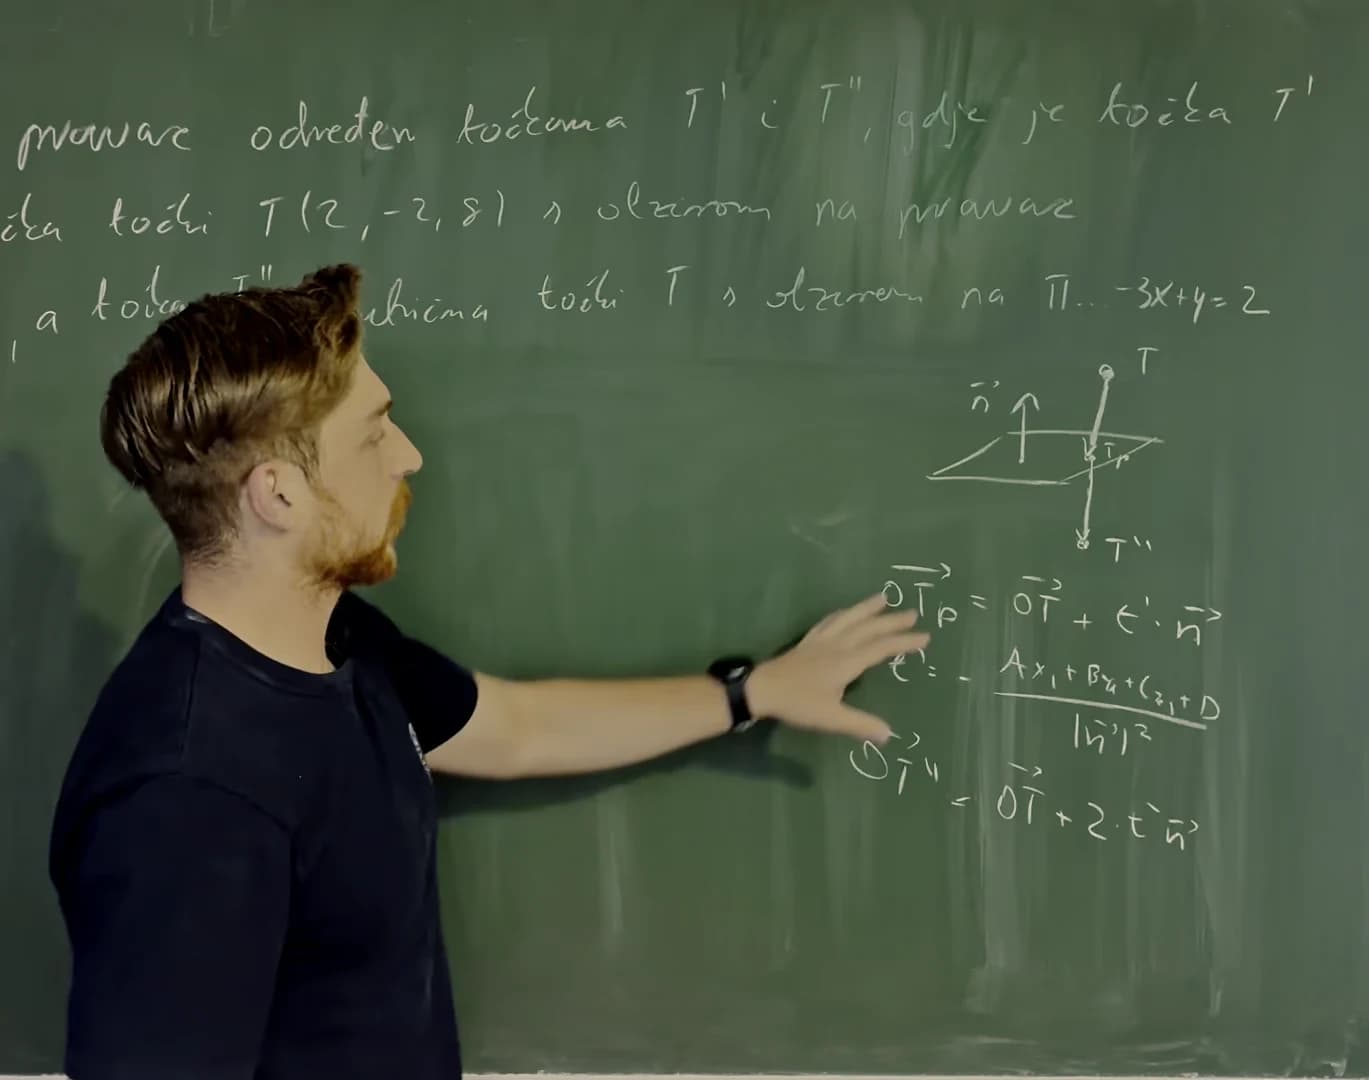 pravac određen točkama T' i T'', gdje je točka T'
čka točki T(2, -2, 8) s obzirom na pravac
a točka T'' točki T s obzirom na Π... -3x+y=2
T
n⃗
Tp
T''
OTp⃗ = OT⃗ + t'·n⃗
t' = - (Ax₁+By₁+Cz₁+D) / |n⃗|²
OT''⃗ = OT⃗ + 2·t'n⃗